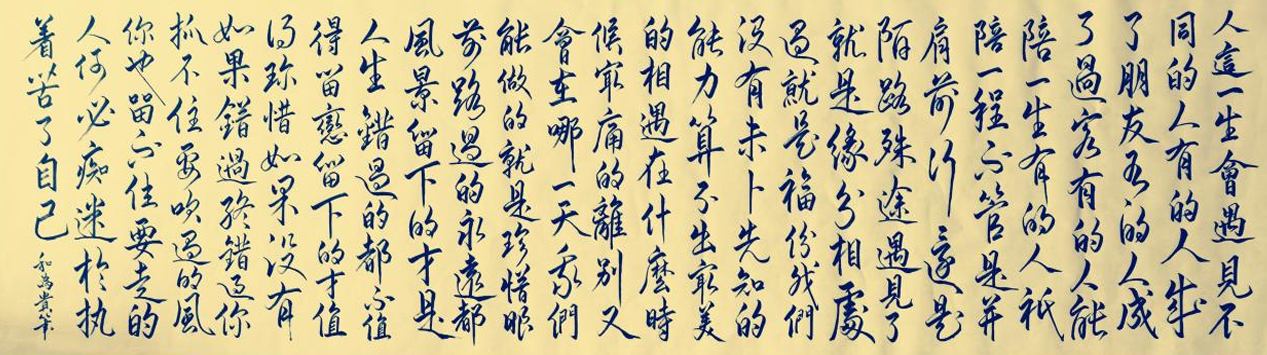 人這一生會遇見不
同的人有的人成
了朋友有的人成
了過客有的人能
陪一生有的人祇
陪一程不管是并
肩前行還是
陌路殊途遇見了
就是緣分相處
過就是福份我們
没有未卜先知的
能力算不出最美
的相遇在什麼時
候最痛的離别又
會在哪一天我們
能做的就是珍惜眼
前路過的永遠都
風景留下的才是
人生錯過的都不值
得留戀留下的才值
得珍惜如果没有
如果錯過終錯過你
抓不住要吹過的風
你也留不住要走的
人何必痴迷於执
着苦了自己
和為貴筆